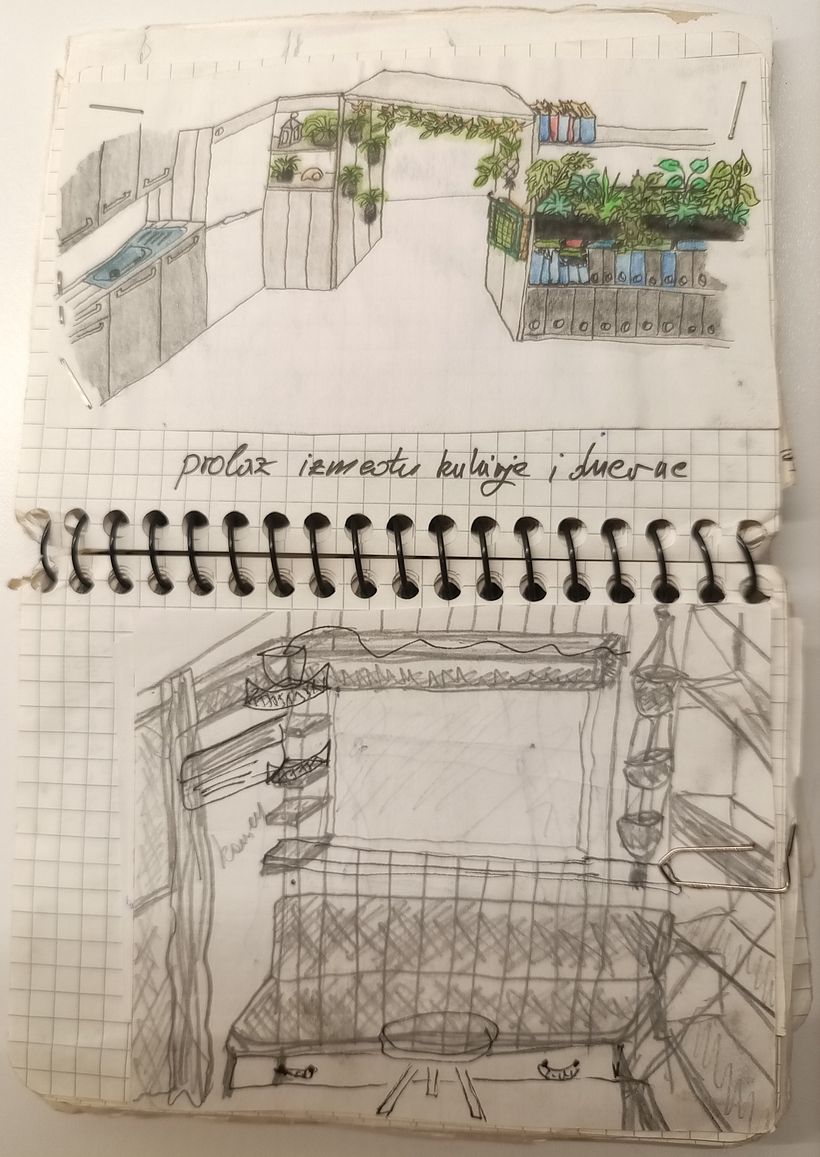 prolaz između kuhinje i dnevne